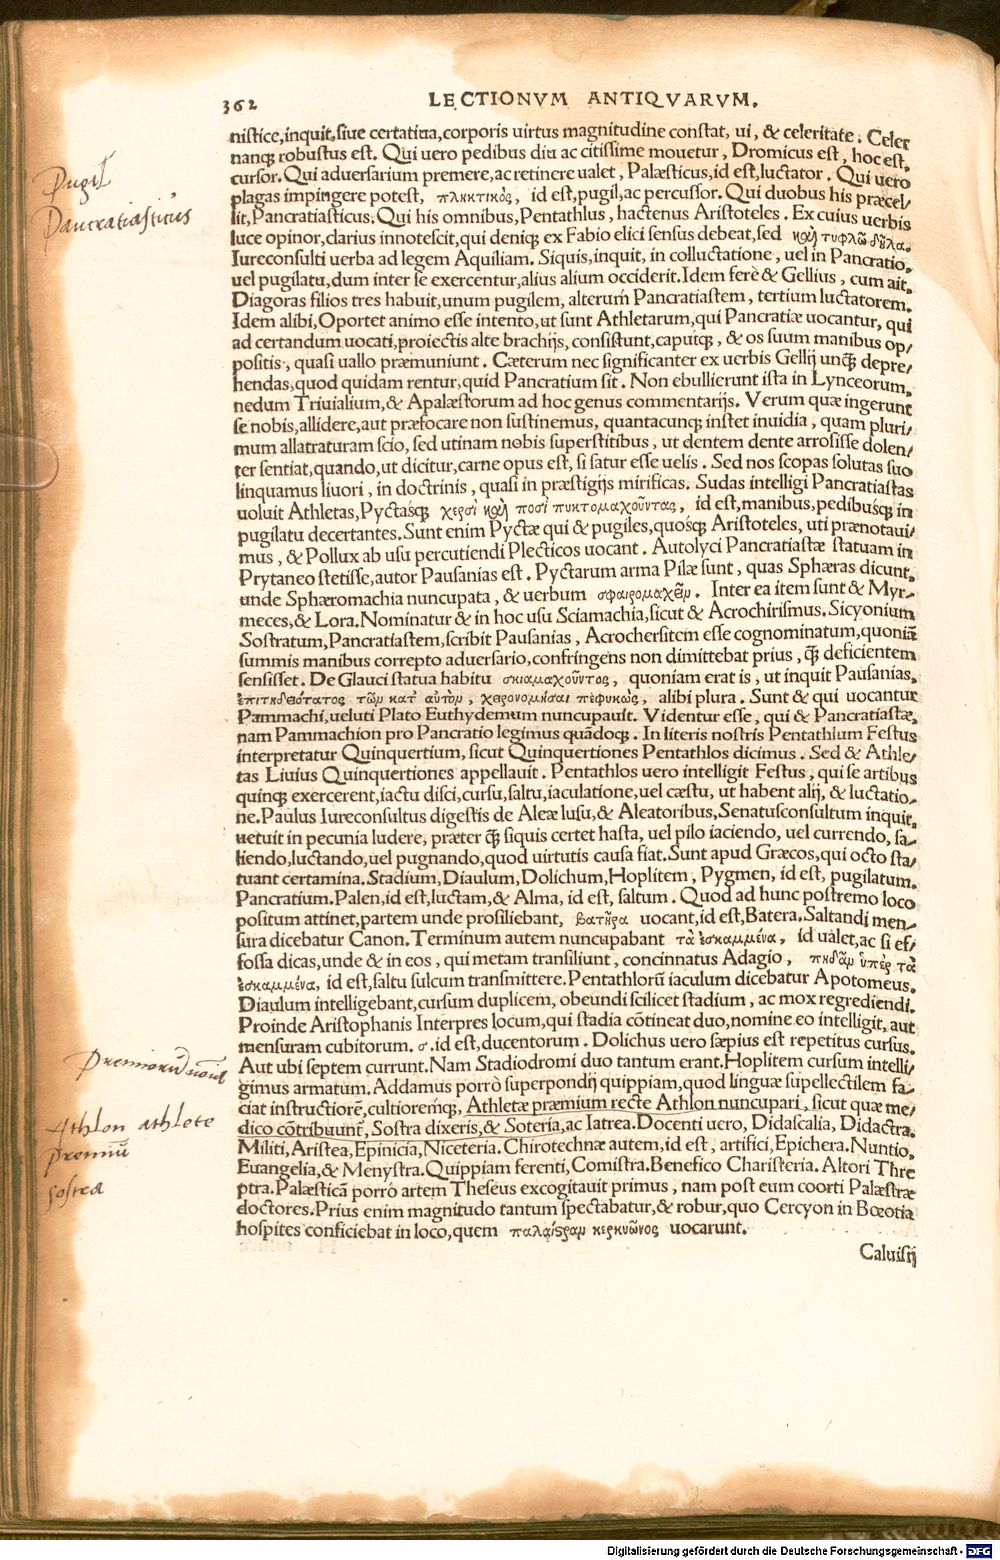 362 LECTIONVM ANTIQVARVM.
nistice,inquit,siue certatiua,corporis uirtus magnitudine constat, ui, & celeritate. Celer
nanq; robustus est. Qui uero pedibus diu ac citissime mouetur, Dromicus est, hoc est,
cursor. Qui aduersarium premere,ac retinere ualet, Palæsticus,id est,luctator. Qui uero
plagas impingere potest, πληκτικὸς, id est,pugil,ac percussor. Qui duobus his præcel/
lit,Pancratiasticus. Qui his omnibus, Pentathlus, hactenus Aristoteles. Ex cuius uerbis
luce opinor,clarius innotescit,qui deniq; ex Fabio elici sensus debeat,sed καὶ τυφλῶ δῆλα.
Iureconsulti uerba ad legem Aquiliam. Siquis,inquit, in colluctatione, uel in Pancratio,
uel pugilatu,dum inter se exercentur,alius alium occiderit.Idem ferè & Gellius, cum ait,
Diagoras filios tres habuit,unum pugilem, alterum Pancratiastem, tertium luctatorem.
Idem alibi,Oportet animo esse intento,ut sunt Athletarum,qui Pancratiæ uocantur, qui
ad certandum uocati,proiectis alte brachijs, consistunt,caputq;, & os suum manibus op/
positis, quasi uallo præmuniunt. Cæterum nec significanter ex uerbis Gellij unq̃ depre/
hendas,quod quidam rentur,quid Pancratium sit. Non ebullierunt ista in Lynceorum,
nedum Triuialium,& Apalæstorum ad hoc genus commentarijs. Verum quæ ingerunt
se nobis,allidere,aut præfocare non sustinemus, quantacunq; instet inuidia, quam pluri/
mum allatraturam scio, sed utinam nobis superstitibus, ut dentem dente arrosisse dolen/
ter sentiat,quando,ut dicitur,carne opus est, si satur esse uelis. Sed nos scopas solutas suo
linquamus liuori, in doctrinis, quasi in præstigijs mirificas. Sudas intelligi Pancratiastas
uoluit Athletas,Pyctasq; χερσὶ καὶ ποσὶ πυκτομαχοῦντας, id est,manibus,pedibusq; in
pugilatu decertantes.Sunt enim Pyctæ qui & pugiles,quosq; Aristoteles, uti prænotaui/
mus, & Pollux ab usu percutiendi Plecticos uocant. Autolyci Pancratiastæ statuam in
Prytaneo stetisse,autor Pausanias est. Pyctarum arma Pilæ sunt, quas Sphæras dicunt,
unde Sphæromachia nuncupata, & uerbum σφαιρομαχεῖν. Inter ea item sunt & Myr-
meces,& Lora.Nominatur & in hoc usu Sciamachia,sicut & Acrochirismus.Sicyonium
Sostratum,Pancratiastem,scribit Pausanias, Acrochersitem esse cognominatum,quoniã
summis manibus correpto aduersario,confringens non dimittebat prius, q̃ deficientem
sensisset. De Glauci statua habitu σκιαμαχοῦντος, quoniam erat is, ut inquit Pausanias,
ἐπιτηδειότατος τῶν κατ' αὐτὸν, χειρονομῆσαι πεφυκὼς, alibi plura. Sunt & qui uocantur
Pammachi,ueluti Plato Euthydemum nuncupauit. Videntur esse, qui & Pancratiastæ,
nam Pammachion pro Pancratio legimus quãdoq;. In literis nostris Pentathlum Festus
interpretatur Quinquertium, sicut Quinquertiones Pentathlos dicimus. Sed & Athle/
tas Liuius Quinquertiones appellauit. Pentathlos uero intelligit Festus, qui se artibus
quinq; exercerent,iactu disci,cursu,saltu,iaculatione,uel cæstu, ut habent alij, & luctatio-
ne.Paulus Iureconsultus digestis de Aleæ lusu,& Aleatoribus,Senatusconsultum inquit,
uetuit in pecunia ludere, præter q̃ siquis certet hasta, uel pilo iaciendo, uel currendo, sa-
liendo,luctando,uel pugnando,quod uirtutis causa fiat.Sunt apud Græcos,qui octo sta/
tuant certamina.Stadium,Diaulum,Dolichum,Hoplitem, Pygmen, id est, pugilatum.
Pancratium.Palen,id est,luctam,& Alma, id est, saltum. Quod ad hunc postremo loco
positum attinet,partem unde prosiliebant, βατῆρα uocant,id est,Batera.Saltandi men-
sura dicebatur Canon.Terminum autem nuncupabant τὰ ἐσκαμμένα, id ualet,ac si ef/
fossa dicas,unde & in eos, qui metam transiliunt, concinnatus Adagio, πηδᾶν ὑπὲρ τὰ
ἐσκαμμένα, id est,saltu sulcum transmittere.Pentathlorũ iaculum dicebatur Apotomeus.
Diaulum intelligebant,cursum duplicem, obeundi scilicet stadium, ac mox regrediendi.
Proinde Aristophanis Interpres locum,qui stadia cõtineat duo,nomine eo intelligit, aut
mensuram cubitorum. σ. id est,ducentorum. Dolichus uero sæpius est repetitus cursus.
Aut ubi septem currunt.Nam Stadiodromi duo tantum erant.Hoplitem cursum intelli/
gimus armatum. Addamus porrò superpondij quippiam,quod linguæ supellectilem fa/
ciat instructiorẽ,cultioremq;, Athletæ præmium recte Athlon nuncupari, sicut quæ me/
dico cõtribuunt, Sostra dixeris,& Soteria,ac Iatrea.Docenti uero, Didascalia, Didactra.
Militi,Aristea,Epinicia,Niceteria. Chirotechnæ autem,id est, artifici, Epichera. Nuntio,
Euangelia,& Menystra. Quippiam ferenti,Comistra.Benefico Charisteria. Altori Thre
ptra.Palæsticã porrò artem Theseus excogitauit primus, nam post eum coorti Palæstræ
doctores.Prius enim magnitudo tantum spectabatur,& robur,quo Cercyon in Bœotia
hospites conficiebat in loco,quem παλαίστραν κερκυῶνος uocarunt.
Caluisij
Pugil
Pancratiasticus
Premiorũ noĩa
Athlon athlete
premiũ
sostra
Digitalisierung gefördert durch die Deutsche Forschungsgemeinschaft - DFG